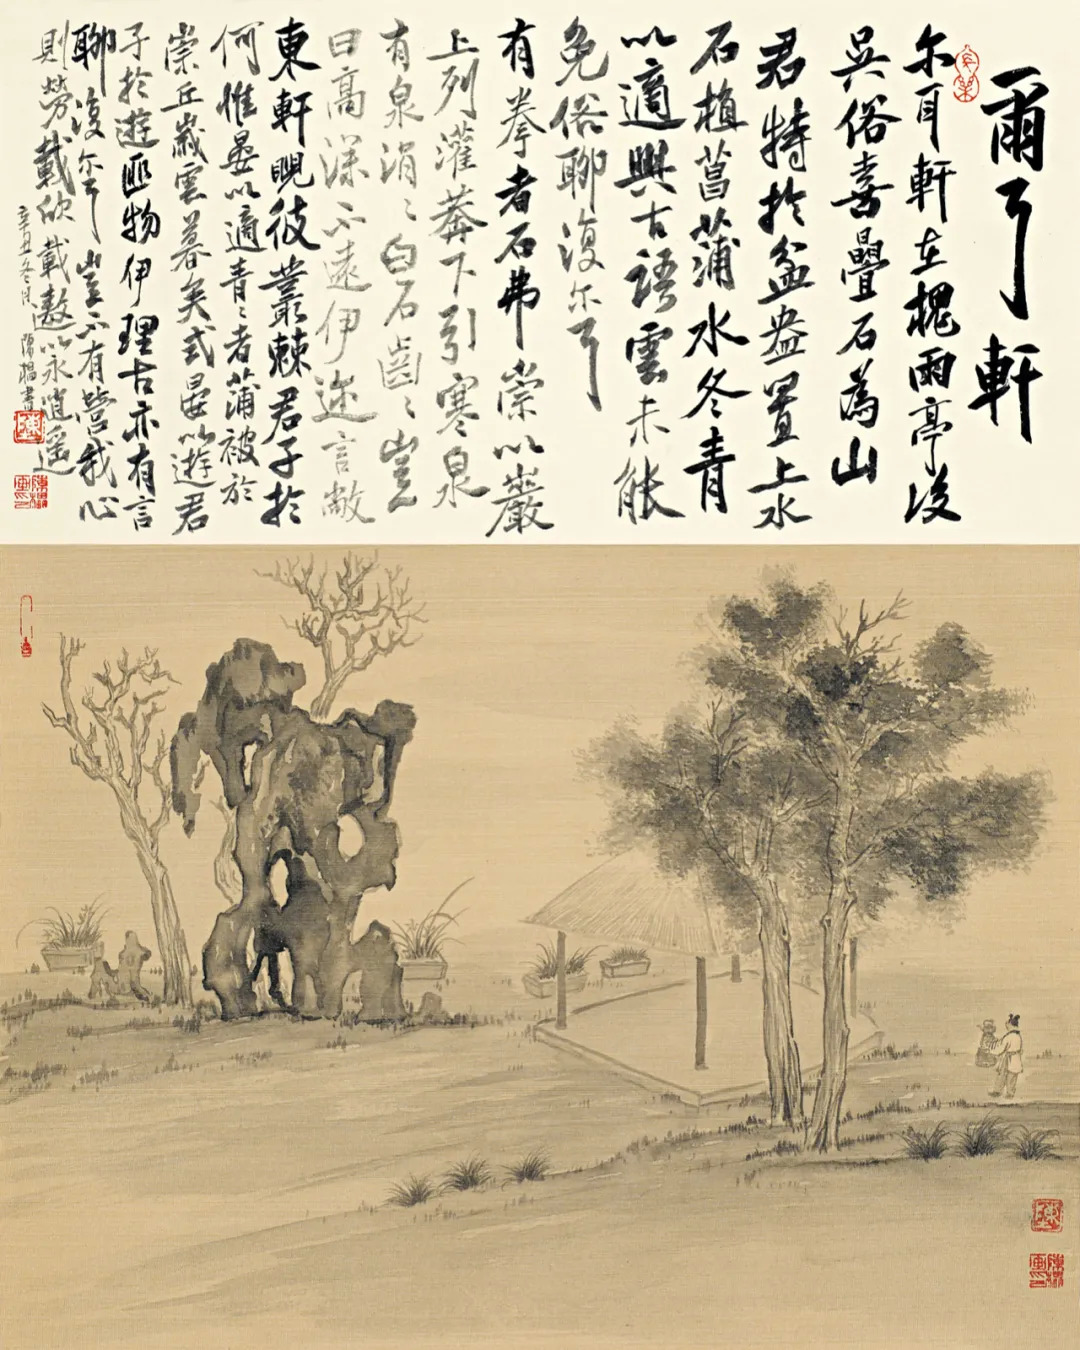 爾耳軒
尔耳軒在槐雨亭後
吳俗喜疊石為山
君特於盆盎置上水
石植菖蒲水冬青
以適興古語雲未能
免俗聊復尔耳
有拳者石弗崇以巖
上列灌莽下引寒泉
有泉涓〻白石齒〻豈
曰高深不遠伊迩言敞
東軒睨彼叢棘君子於
何惟晏以適青〻者蒲被於
崇丘嵗雲暮矣式晏以遊君
子於遊匪物伊理古亦有言
聊復尔耳豈不有營我心
則勞載欣載遨以永逍遥
辛丑冬月陳書